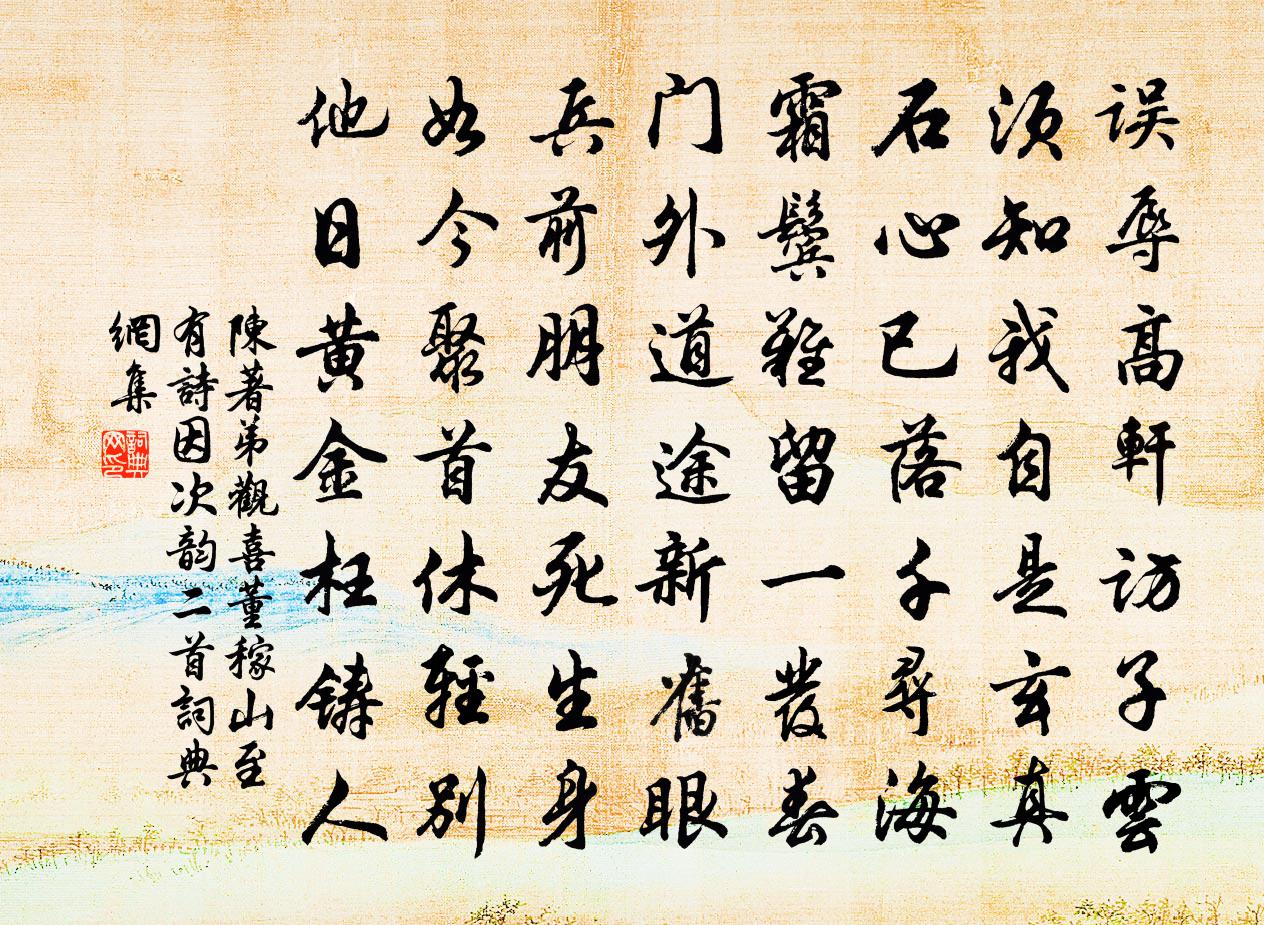 误辱高軒访子雲
须知我自是玄真
石心已落千尋海
霜鬓難留一發春
门外道途新舊眼
兵前朋友死生身
如今聚首休輕别
他日黄金枉铸人
陳著弟觀喜董稼山至
有詩因次韵二首詞典
網集
詞典
网印